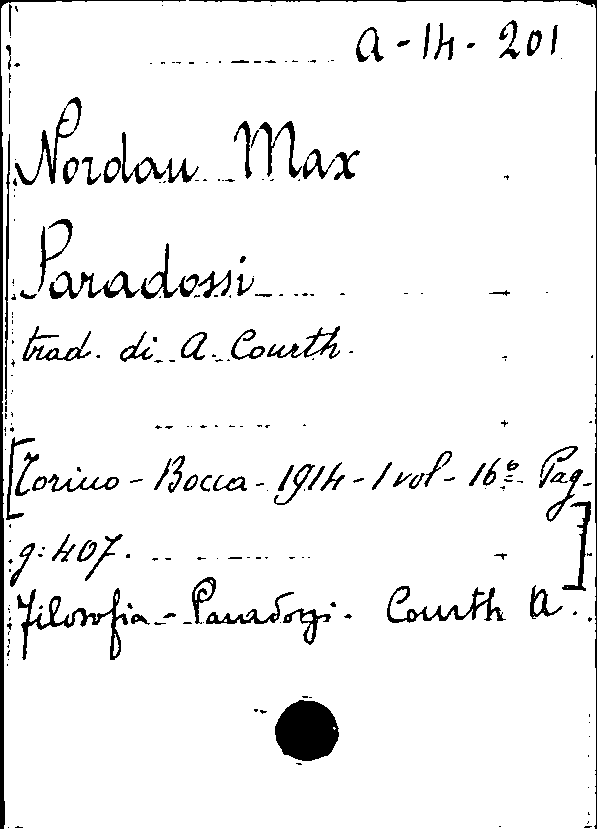 A-14-201
Nordau Max
Paradossi
trad. di A. Courth.
[Torino - Bocca - 1914 - 1 vol - 16º Pag-
g: 407.]
Filosofia - Paradossi. Courth A.